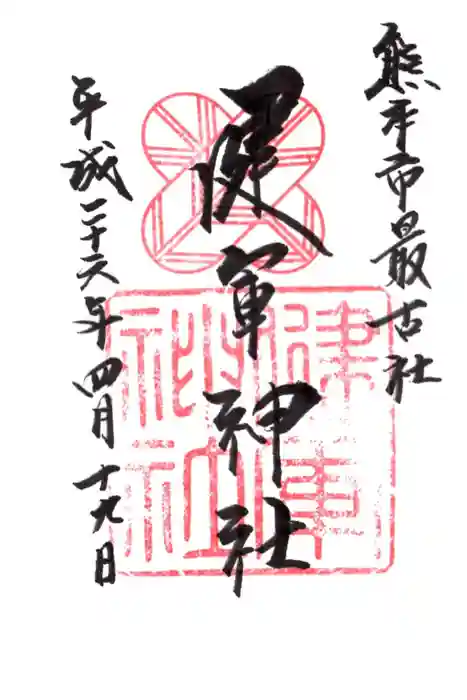 熊本市最古社
健軍神社
平成二十六年四月十九日
健軍
神社